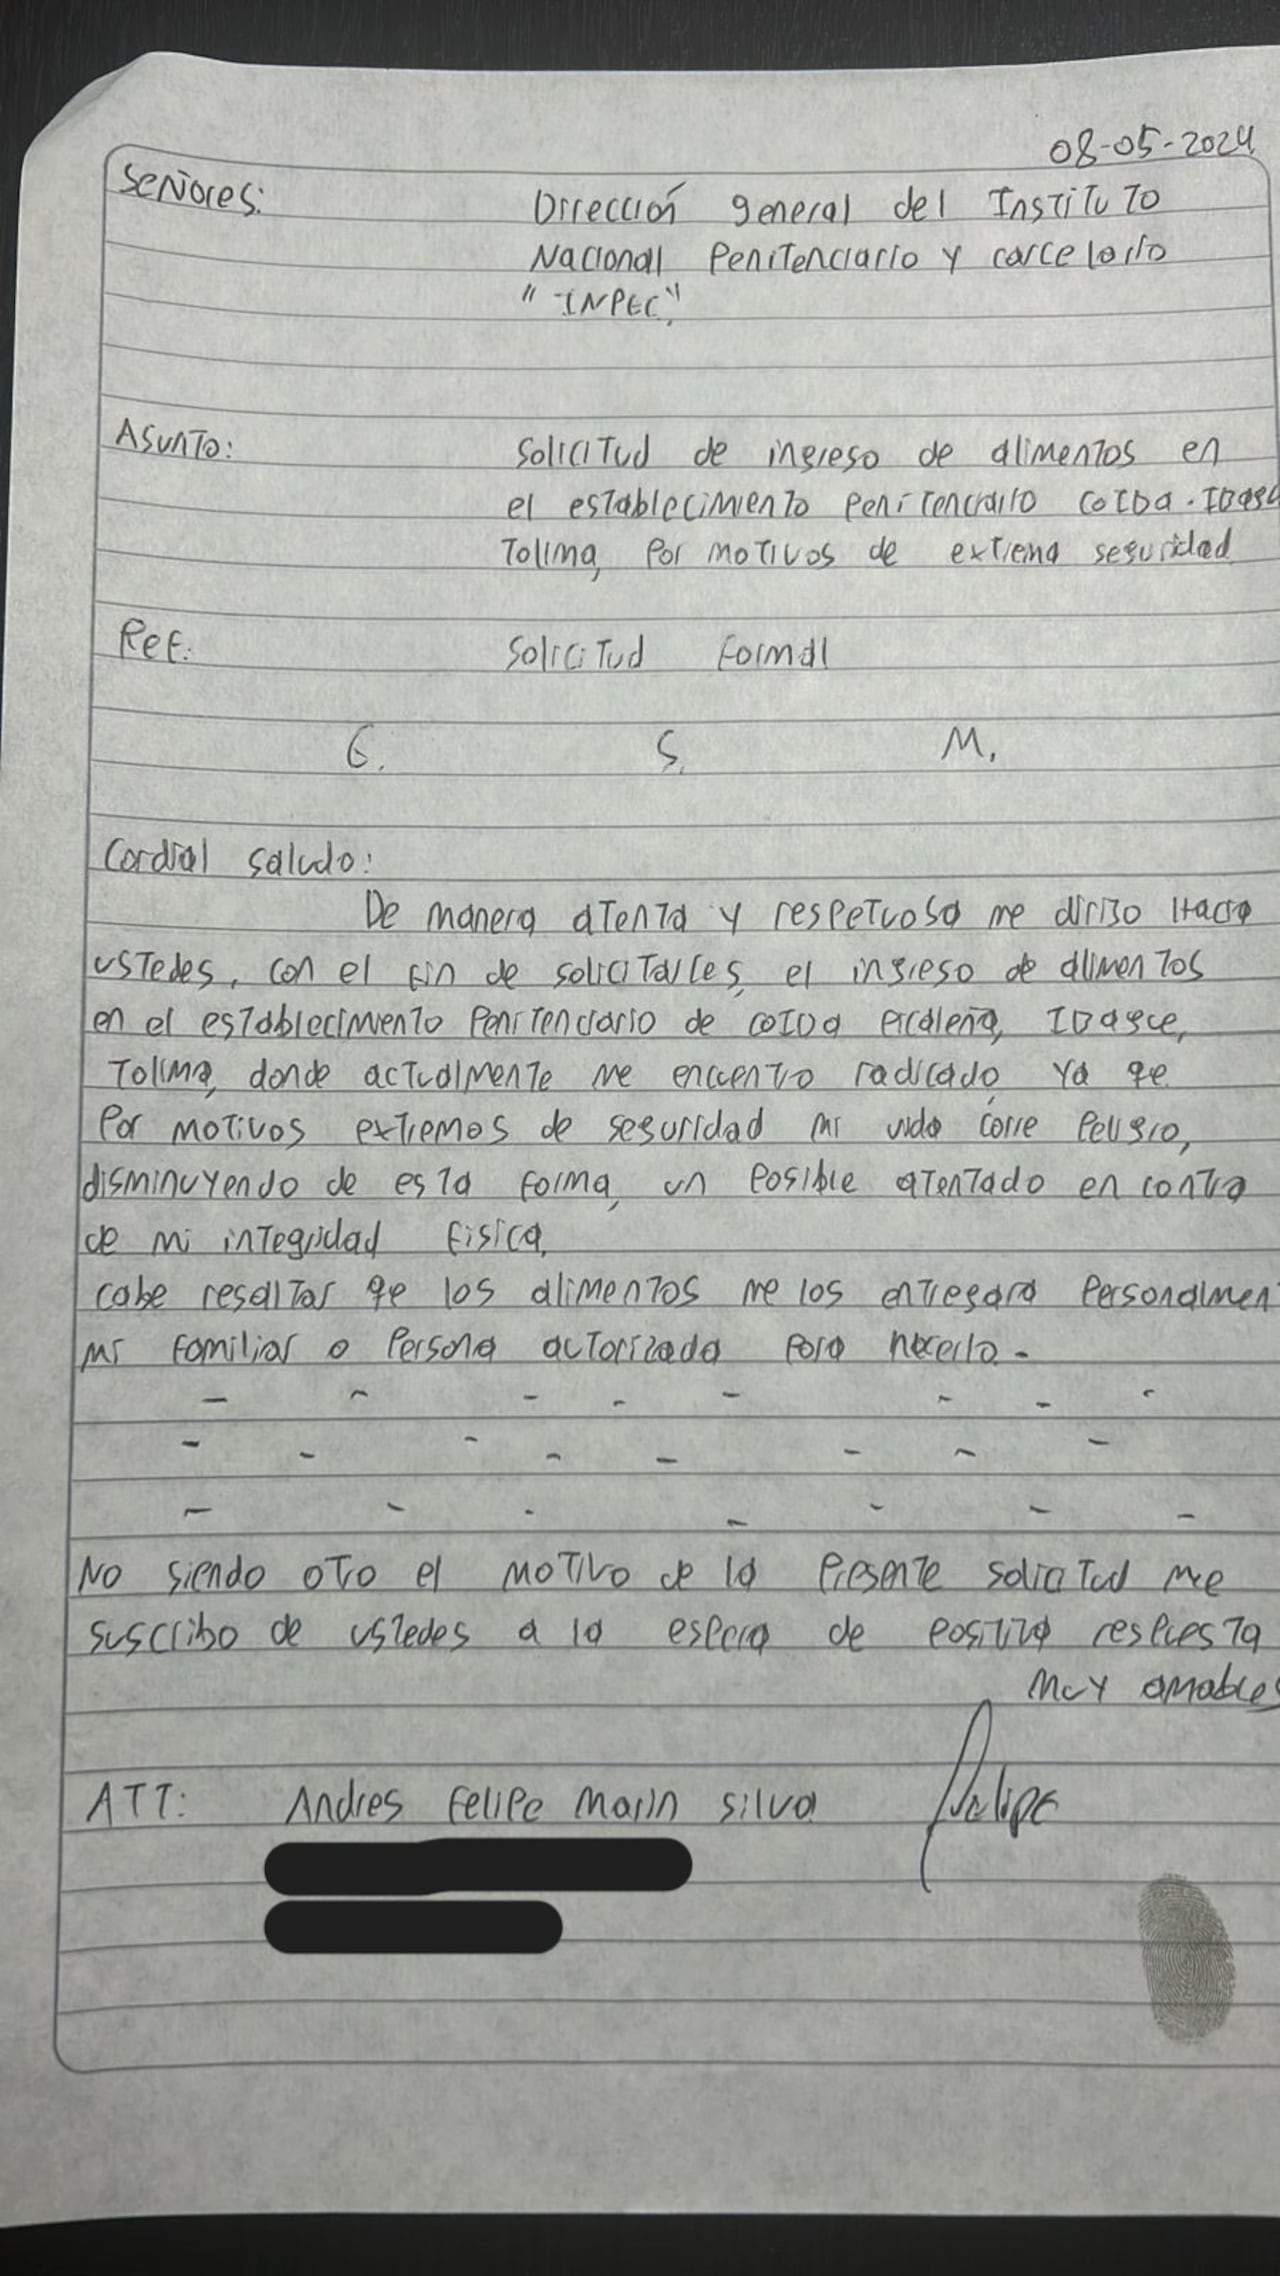 08-05-2024
Señores:
Dirección general del Instituto
Nacional Penitenciario y carcelario
"INPEC"
Asunto:
Solicitud de ingreso de alimentos en
el establecimiento penitenciario COIBA. Ibag
Tolima, Por motivos de extrema seguridad
Ref:
Solicitud Formal
E. S. M.
Cordial saludo:
De manera atenta y respetuosa me dirijo Hacia
ustedes, con el fin de solicitarles, el ingreso de alimentos
en el establecimiento Penitenciario de COIBA Picaleña, Ibague,
Tolima, donde actualmente me encuentro radicado, ya qe
Por motivos extremos de seguridad mi vida corre Peligro,
disminuyendo de esta forma, un posible atentado en contra
de mi integridad Fisica,
cabe resaltar qe los alimentos me los entregara Personalmen
mi Familiar o Persona autorizada para hacerlo -
No siendo otro el motivo de la Presente solicitud me
suscribo de ustedes a la espera de positiva respuesta
Muy amables
ATT: Andres Felipe Marin Silva Felipe